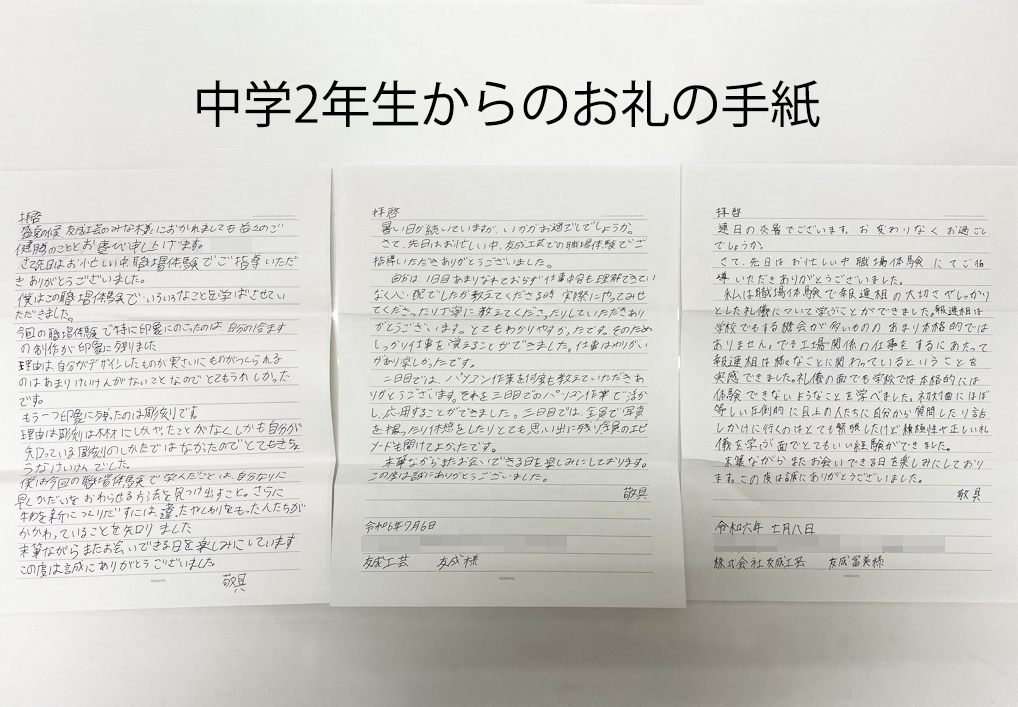 中学2年生からのお礼の手紙
拝啓
盛夏の候、友成工芸のみな様におかれましても益々のご
健勝のこととお慶び申し上げます。
さて先日はお忙しい中、職場体験でご指導いただ
きありがとうございました。
僕はこの職場体験でいろいろなことを学ばさせてい
ただきました。
今回の職場体験で特に印象にのこったのは、自分の
の制作が印象に残りました
理由は、自分がデザインしたものが実さいにものがつくられる
のはあまりけいけんがないことなのでとてもうれしかった
です。
もう一つ印象に残ったのは彫刻です
理由は彫刻は木材にしかやったことがなくしかも自分が
知っている彫刻のしかたではなかったのでとてもきちょ
うなけいけんでした。
僕は今回の職場体験で学んだことは、自分なりに
早くかだいをおわらせる方法を見つけ出すこと。さらに
物を新につくりだすには、たやしかりをもった人たちが
かかわっていることを知りました
末筆ながらまたお会いできる日を楽しみにしています
この度は誠にありがとうございました。
敬具
KOKUYO
拝啓
暑い日が続いていますが、いかがお過でしでしょうか。
さて、先日はお忙しい中、友成工芸での職場体験でご
指導いただきありがとうございました。
自分は、1日目あまりなれておらず仕事内容も理解できてい
なく心配でしたが教えてくださる時、実際にやってみせ
てくださったり丁寧に教えてくださったりしていただきあり
がとうございます。とてもわかりやすかったです。そのため
しっかり仕事を演えることができました。仕事はやりがい
があり楽しかったです。
二日目では、パソコン作業を何度も教えていただきあ
りがとうございます。それを三日目でのパソコン作業で活か
し、応用することができました。三日目では、全員で写真
を撮ったり休憩をしたりとても思い出に残り全員のエピ
ソードも聞けてよかったです。
末筆ながらまたお会いできる日を楽しみにしております。
この度は誠にありがとうございました。
敬具
令和6年7月6日
友成工芸 友成様
KOKUYO
拝啓
連日の炎暑でございます。お変わりなくお過ごし
でしょうか。
さて、先日はお忙しい中職場体験にてご指
導いただきありがとうございました。
私は職場体験で報連相の大切さやしっかり
とした礼儀について学ぶことができました。報連相は
学校でもする機会が多いもののあまり本格的では
ありません。でも工場関係の仕事をするにあたって
報連相は様々なことに関わっているということを
実感できました。礼儀の面でも学校では本格的には
体験できないようなことを学べました。初対面にほぼ
等しい圧倒的に目上の人たちに自分から質問したり話
しかけに行くのはとても緊張したけど積極性や正しい礼
儀を学ぶ面でとてもいい経験ができました。
末筆ながらまたお会いできる日を楽しみにしており
ます。この度は誠にありがとうございました。
敬具
令和六年 七月八日
株式会社友成工芸 友成冨美様
KOKUYO